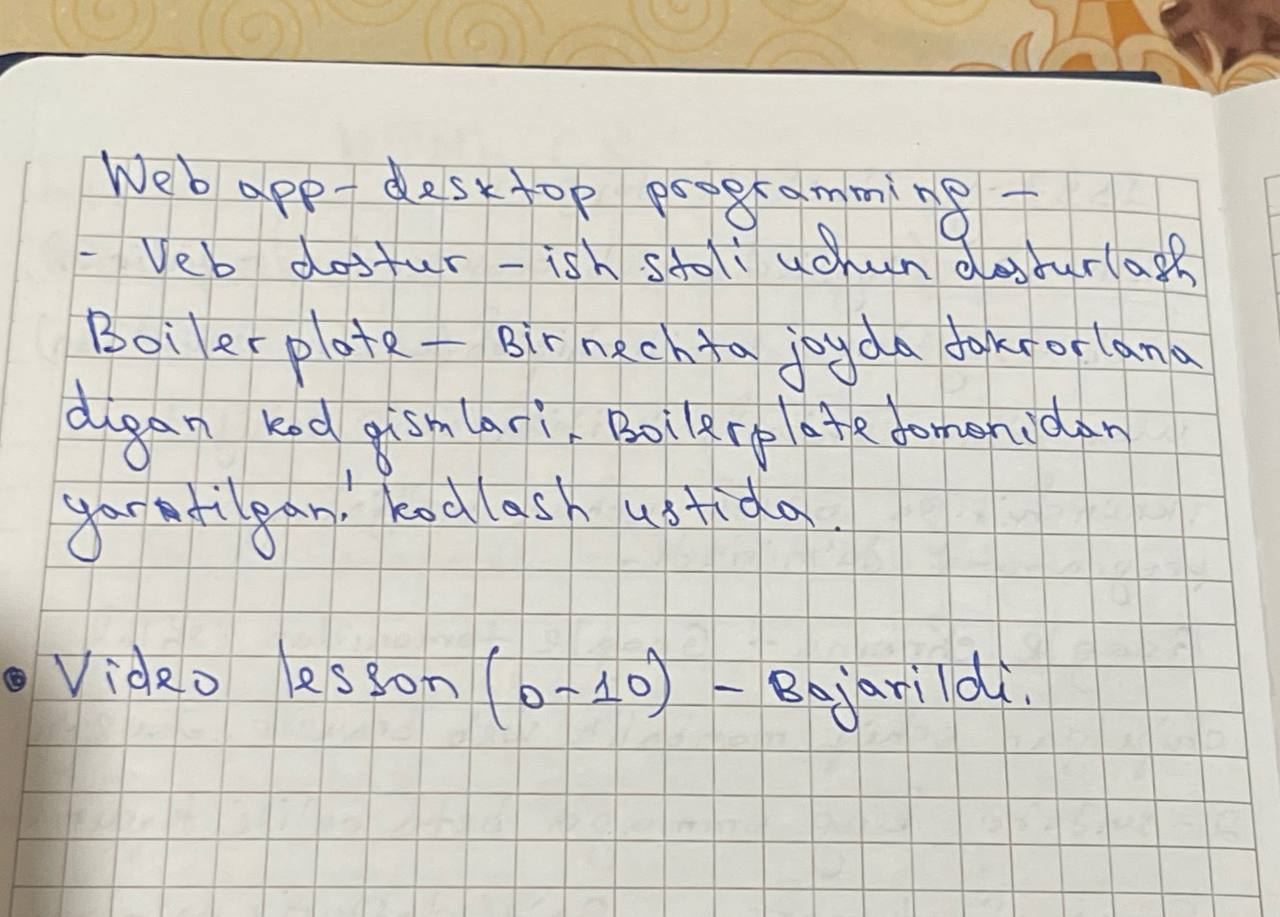 Web app - desktop programming -
- Veb dastur - ish stoli uchun dasturlash
Boilerplate - Bir nechta joyda takrorlana
digan kod qismlari. Boilerplate tomonidan
yaratilgan! kodlash ustida.
• Video lesson (0-10) - Bajarildi.